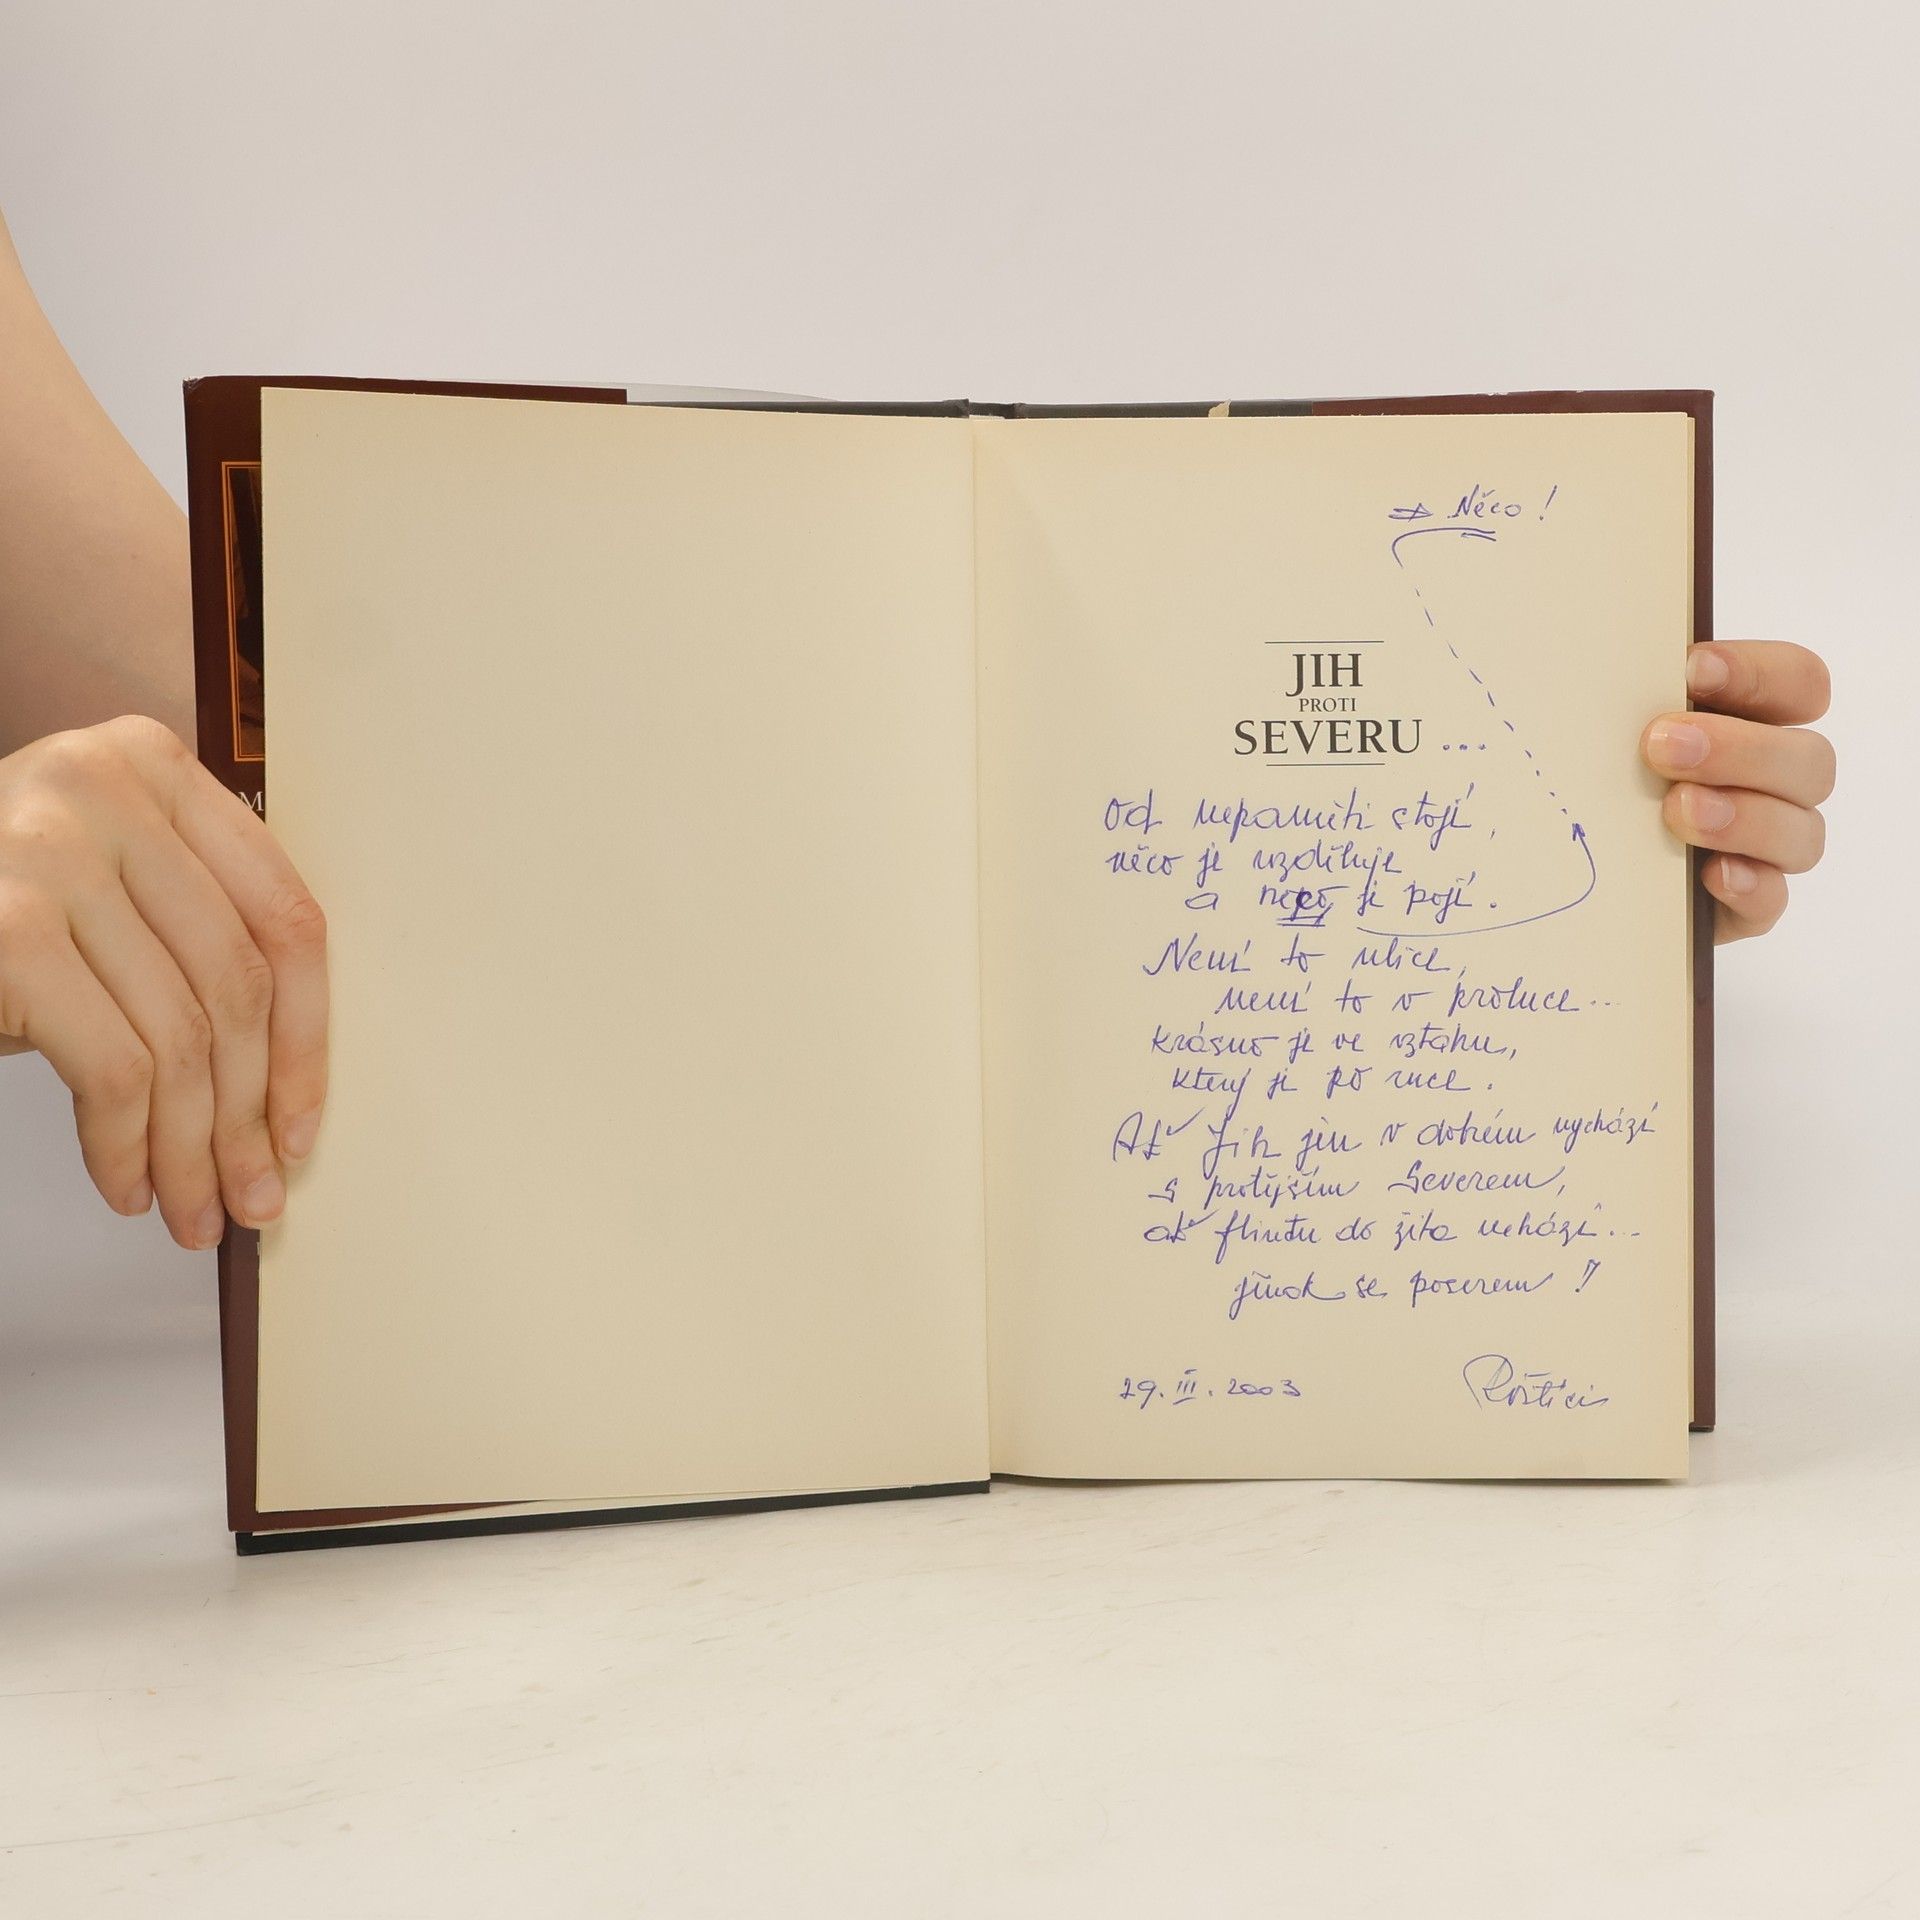 ⇒ Něco!
JIH
PROTI
SEVERU ...
Od nepaměti stojí,
něco je vzděluje
a je pojí.
Není to ulice,
není to v proluce...
krásno je ve vztahu,
který je po ruce.
Ať Jih jen v dobrém vychází
s protějším Severem,
ať flintu do žita nehází...
jinak se poserem!
29. III. 2003
Roštíci
M